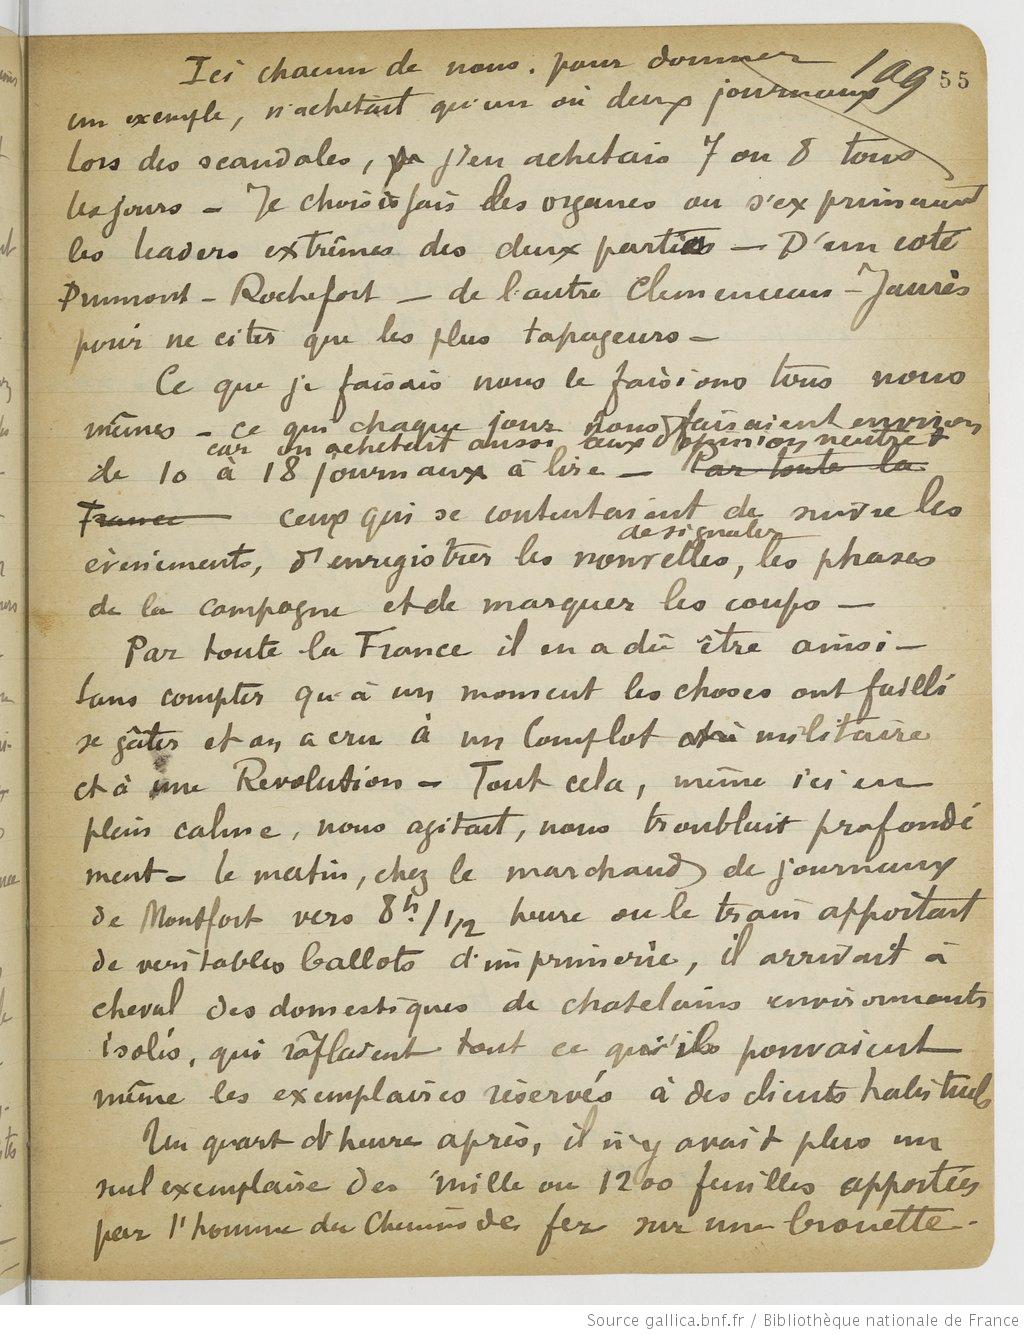 109 55
Ici chacun de nous. pour donner
un exemple, n'achetait qu'un ou deux journaux
Lors des scandales, j'en achetais 7 ou 8 tous
les jours — Je choisissais les organes ou s'exprimaient
les leaders extrêmes des deux partis — D'un coté
Drumont — Rochefort — de l'autre Clemenceau — Jaurès
pour ne citer que les plus tapageurs —
Ce que je faisais nous le faisions tous nous
mêmes — ce qui chaque jour nous faisaient environ
car on achetait aussi aux d'opinion neutres
de 10 à 18 journaux à lire — Par toute la
France ceux qui se contentaient de suivre les
de signaler
évènements, d'enregistrer les nouvelles, les phases
de la campagne et de marquer les coups —
Par toute la France il en a dû être ainsi —
Sans compter qu'à un moment les choses ont failli
se gâter et on a cru à un Complot militaire
et à une Revolution — Tout cela, même ici en
plein calme, nous agitait, nous troublait profondé
ment — le matin, chez le marchand de journaux
de Montfort vers 8h/1/2 heure ou le train apportait
de veritables ballots d'imprimerie, il arrivait à
cheval des domestiques de chatelains environnants
isolés, qui râflaient tout ce qu'ils pouvaient
même les exemplaires réservés à des clients habituels
Un quart d'heure après, il n'y avait plus un
seul exemplaire des mille ou 1200 feuilles apportées
par l'homme du Chemin de fer sur une brouette.
Source gallica.bnf.fr / Bibliothèque nationale de France